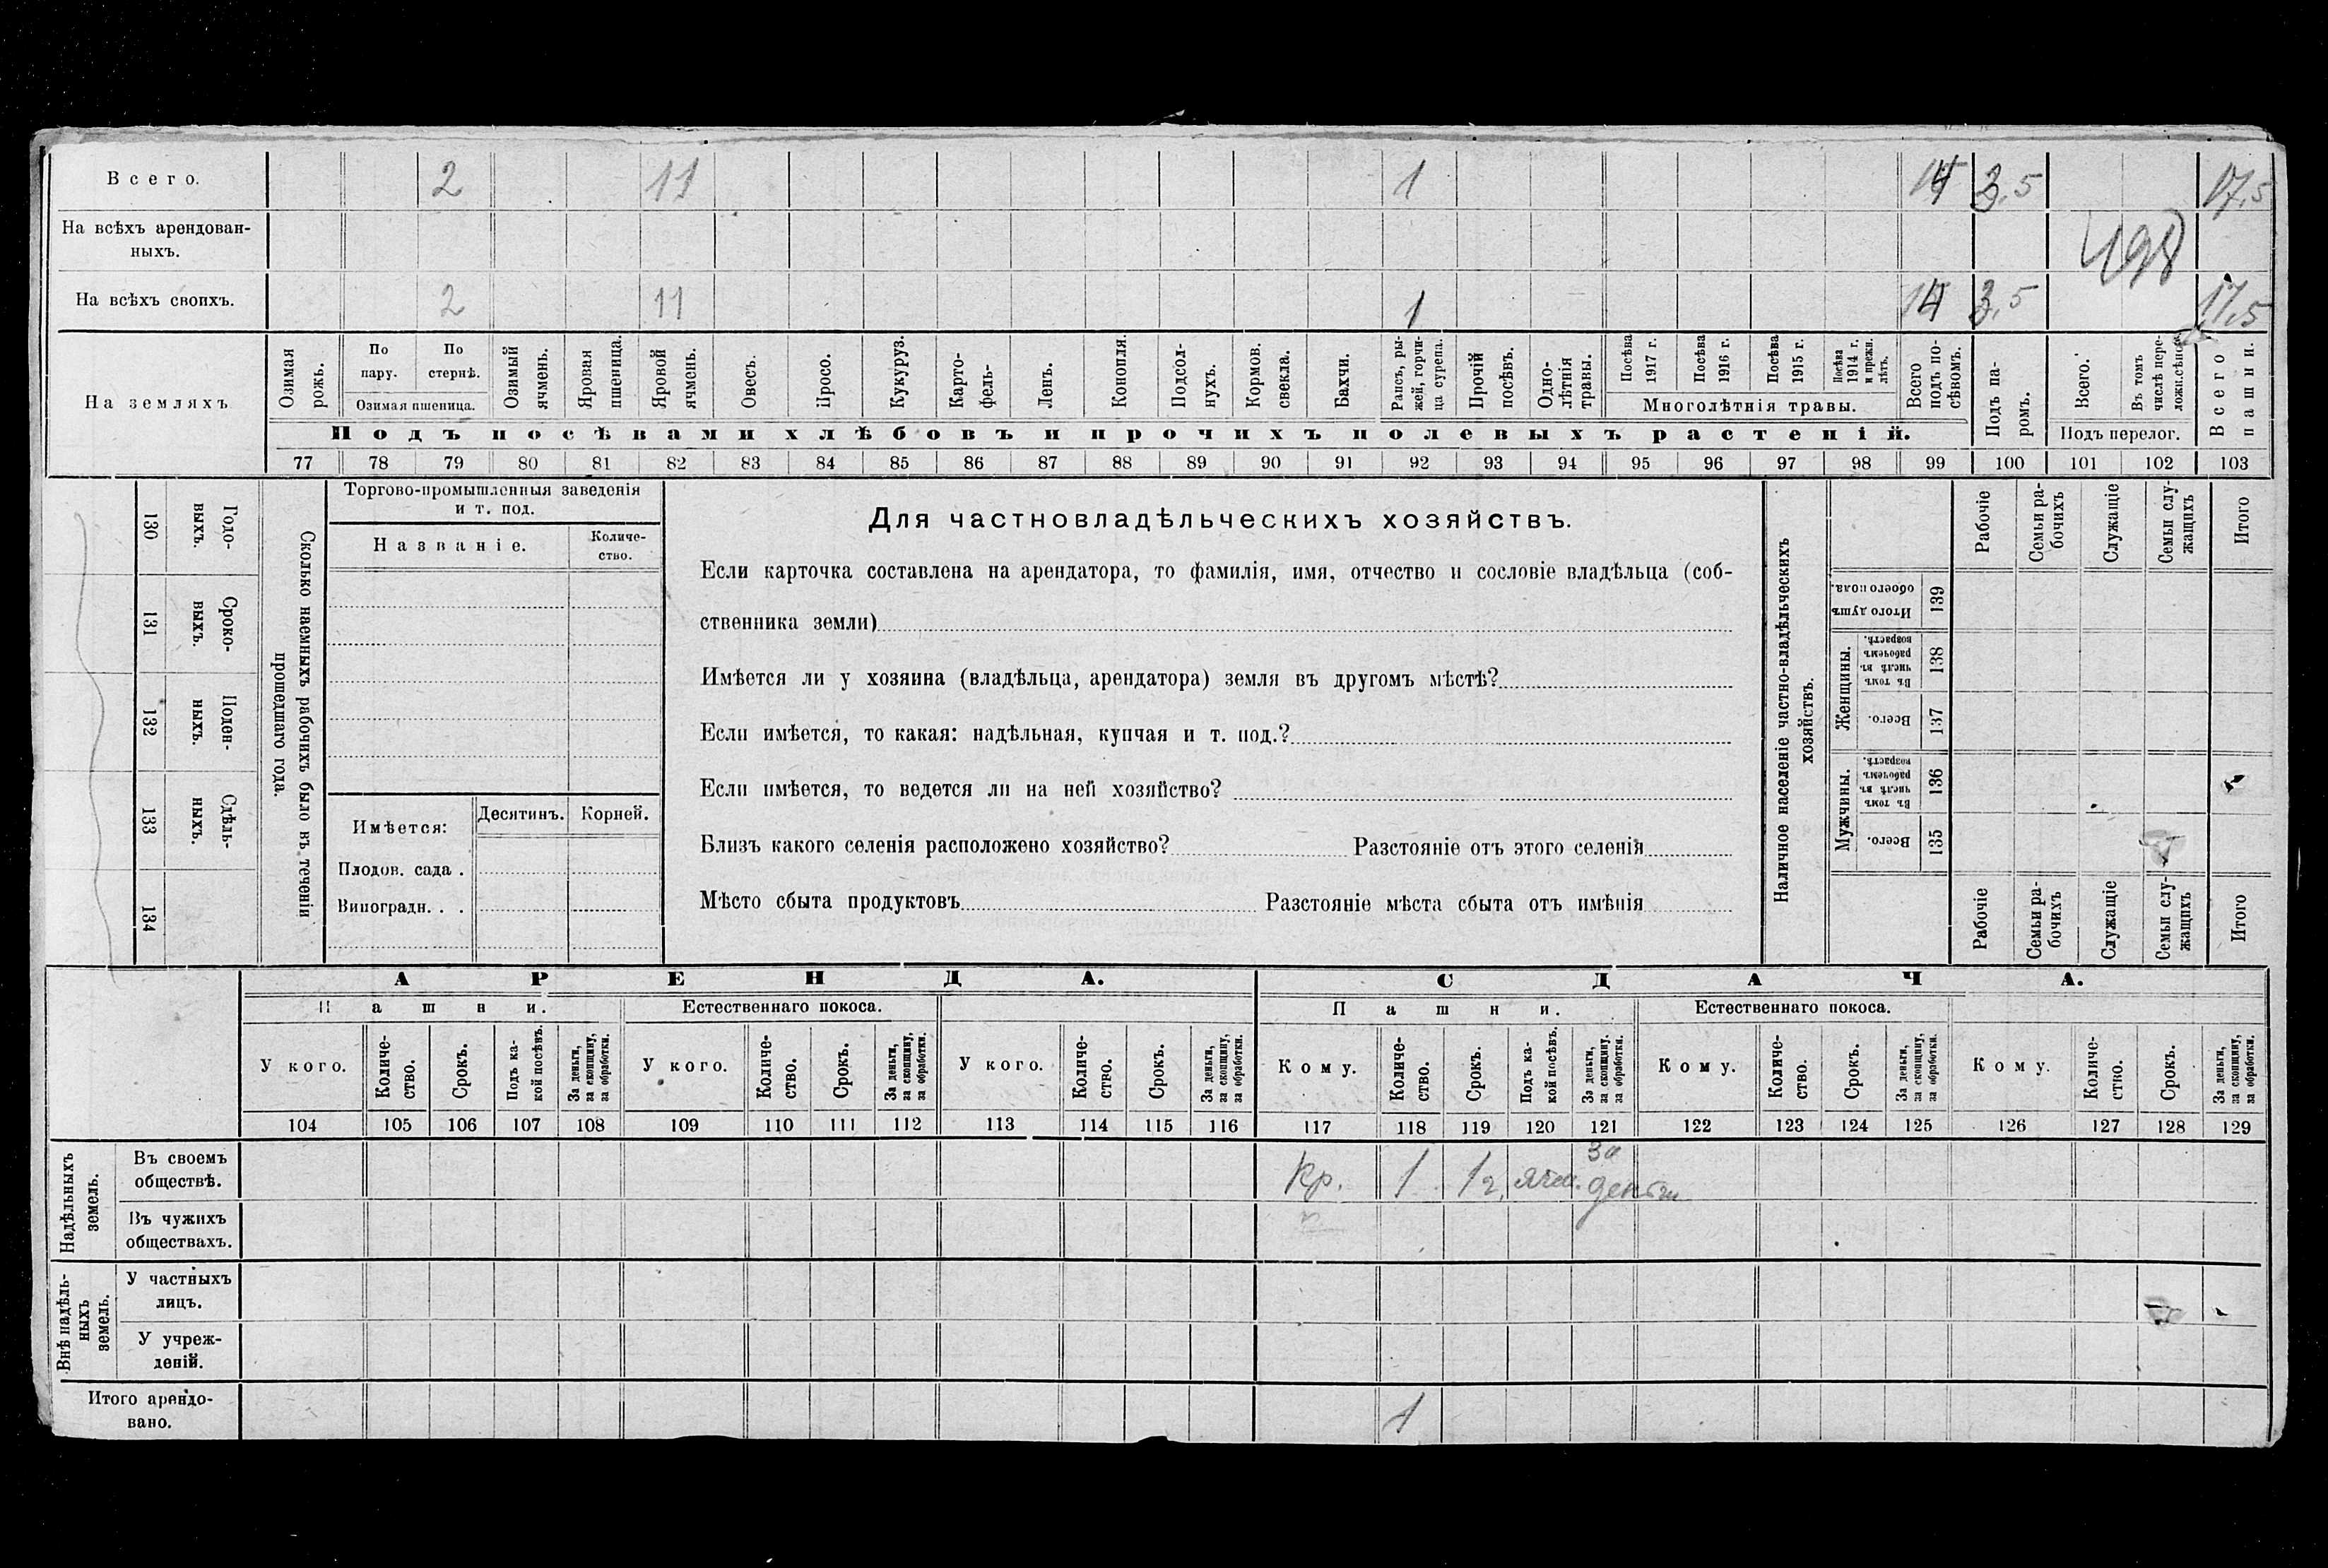 Всего. 2 11 1 14 3,5 17,5
На всѣхъ арендован-
ныхъ.
498
На всѣхъ своихъ. 2 11 1 14 3,5 17,5
На земляхъ
Озимая рожь.
По пару.
По стернѣ.
Озимая пшеница.
Озимый ячмень.
Яровая пшеница.
Яровой ячмень.
Овесъ.
Просо.
Кукуруз.
Карто-
фель-
Ленъ.
Конопля.
Подсол-
нухъ.
Кормов. свекла.
Бахчи.
Рапсъ, ры-
жей, горчи-
ца сурепа.
Прочій посѣвъ.
Одно-
лѣтнія травы.
Посѣва 1917 г.
Посѣва 1916 г.
Посѣва 1915 г.
Посѣва 1914 г. и прежн. лѣтъ.
Многолѣтнія травы.
Всего подъ по-
сѣвомъ.
Подъ па-
ромъ.
Всего.
Въ томъ числѣ пере-
ложн. сѣнок.
Подъ перелог.
Всего пашни.
Подъ посѣвами хлѣбовъ и прочихъ полевыхъ растеній.
77 78 79 80 81 82 83 84 85 86 87 88 89 90 91 92 93 94 95 96 97 98 99 100 101 102 103
Годо-
выхъ.
130
Сроко-
выхъ.
131
Поден-
ныхъ.
132
Сдѣль-
ныхъ.
133
134
Сколько наемныхъ рабочихъ было въ теченіи
прошедшаго года.
Торгово-промышленныя заведенія
и т. под.
Названіе.
Количе-
ство.
Имѣется:
Десятинъ. Корней.
Плодов. сада .
Виноградн. . .
Для частновладѣльческихъ хозяйствъ.
Если карточка составлена на арендатора, то фамилія, имя, отчество и сословіе владѣльца (соб-
ственника земли)
Имѣется ли у хозяина (владѣльца, арендатора) земля въ другомъ мѣстѣ?
Если имѣется, то какая: надѣльная, купчая и т. под.?
Если имѣется, то ведется ли на ней хозяйство?
Близъ какого селенія расположено хозяйство? Разстояніе отъ этого селенія
Мѣсто сбыта продуктовъ Разстояніе мѣста сбыта отъ имѣнія
Наличное населеніе частно-владѣльческихъ
хозяйствъ.
Рабочіе
Семьи ра-
бочихъ
Служащіе
Семьи слу-
жащихъ
Итого
Итого душъ обоего пола.
139
Женщины.
Въ томъ числѣ въ рабочемъ возрастѣ.
138
Всего.
137
Мужчины.
Въ томъ числѣ въ рабочемъ возрастѣ.
136
Всего.
135
Рабочіе
Семьи ра-
бочихъ
Служащіе
Семьи слу-
жащихъ
Итого
АРЕНДА. СДАЧА.
Пашни. Естественнаго покоса. Пашни. Естественнаго покоса.
У кого.
Количе-
ство.
Срокъ.
Подъ ка-
кой посѣвъ.
За деньги,
за скопщину,
за обработки.
У кого.
Количе-
ство.
Срокъ.
За деньги,
за скопщину,
за обработки.
У кого.
Количе-
ство.
Срокъ.
За деньги,
за скопщину,
за обработки.
Кому.
Количе-
ство.
Срокъ.
Подъ ка-
кой посѣвъ.
За деньги,
за скопщину,
за обработки.
Кому.
Количе-
ство.
Срокъ.
За деньги,
за скопщину,
за обработки.
Кому.
Количе-
ство.
Срокъ.
За деньги,
за скопщину,
за обработки.
104 105 106 107 108 109 110 111 112 113 114 115 116 117 118 119 120 121 122 123 124 125 126 127 128 129
Надѣльныхъ
земель.
Въ своемъ
обществѣ.
Кр. 1 1 г. ячм. за деньги
Въ чужихъ
обществахъ.
Внѣ надѣль-
ныхъ
земель.
У частныхъ
лицъ.
У учреж-
деній.
Итого арендо-
вано.
1